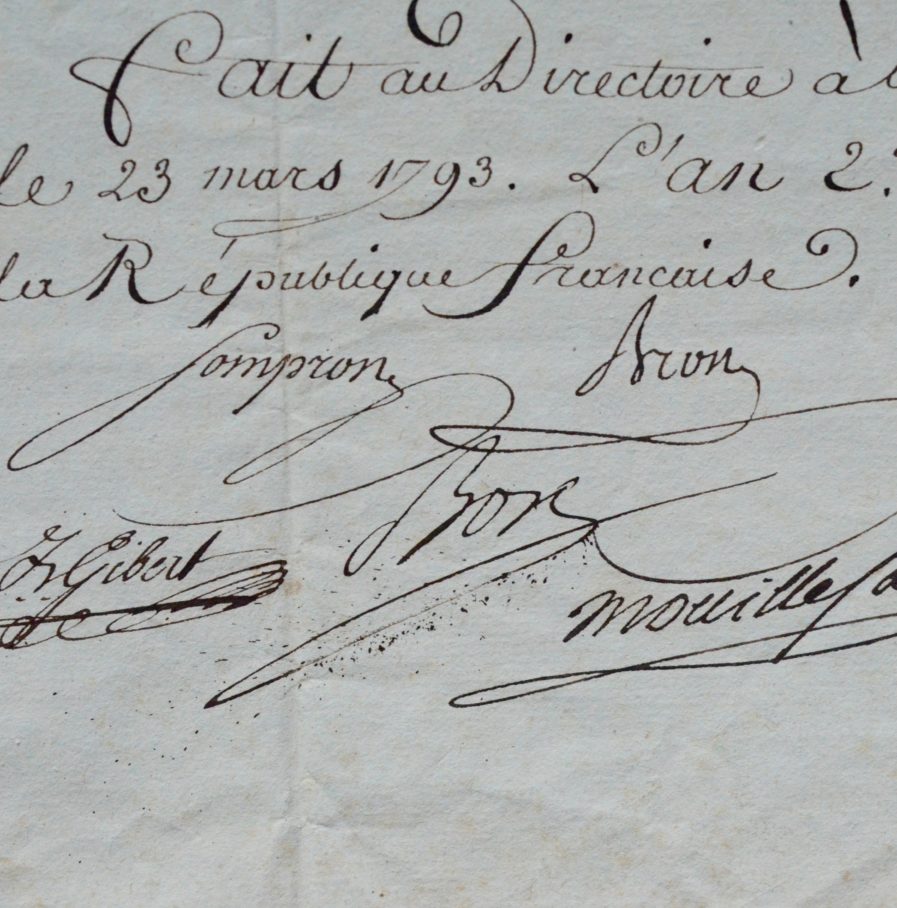 Fait au Directoire à
le 23 mars 1793. L'an 2.
la République francaise.
Sompron Bron
Bore
Gibert